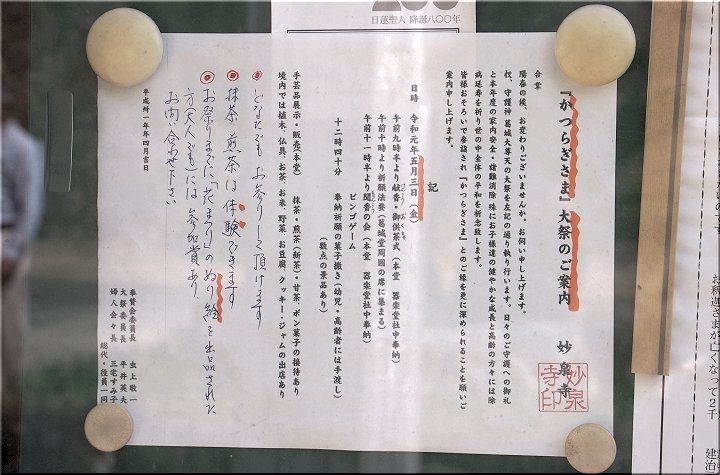 日蓮聖人 降誕八〇〇年
『かつらぎさま』大祭のご案内
妙泉寺
妙泉寺印
合掌
陽春の候、お変わりございませんか。お伺い申し上げます。
扨、守護神 葛城大尊天の大祭を左記の通り執り行います。日々のご守護への御礼
と本年度の家内安全・諸難消除 殊にお子様達の健やかな成長と高齢の方々には除
病延寿を祈り世の中全体の平和を祈念致します。
皆様おそろいで参詣され『かつらぎさま』とのご縁を更に深められることを願いご
案内申し上げます。
記
日時 令和元年五月三日(金)
午前九時半より献香・御供茶式(本堂 器楽堂社中奉納)
午前十時より祈願法要(葛城堂周囲の席に集まる)
午前十一時半より聞香の会(本堂 器楽堂社中奉納)
ビンゴゲーム
十二時四十分 奉納祈願の菓子撒き(幼児・高齢者には手渡し)
(数点の景品あり)
手芸品展示・販売(本堂) 抹茶・煎茶(新茶)・甘茶、ポン菓子の接待あり
境内では植木、仏具、お茶、お米、野菜、お豆腐、クッキー・ジャムの出店あり
どなたでもお参りして頂けます
抹茶、煎茶は体験できます
お祭りまでに「花まつり」のぬり絵を出品された
方(大人でも)には参加賞あり
お問い合わせ下さい
平成卅一年年四月吉日
奉賛会委員長 虫上敬一
大祭委員長 平井英夫
婦人会々長 三宅すみ子
総代・役員一同
お釈迦さまが亡くなって2千
建治